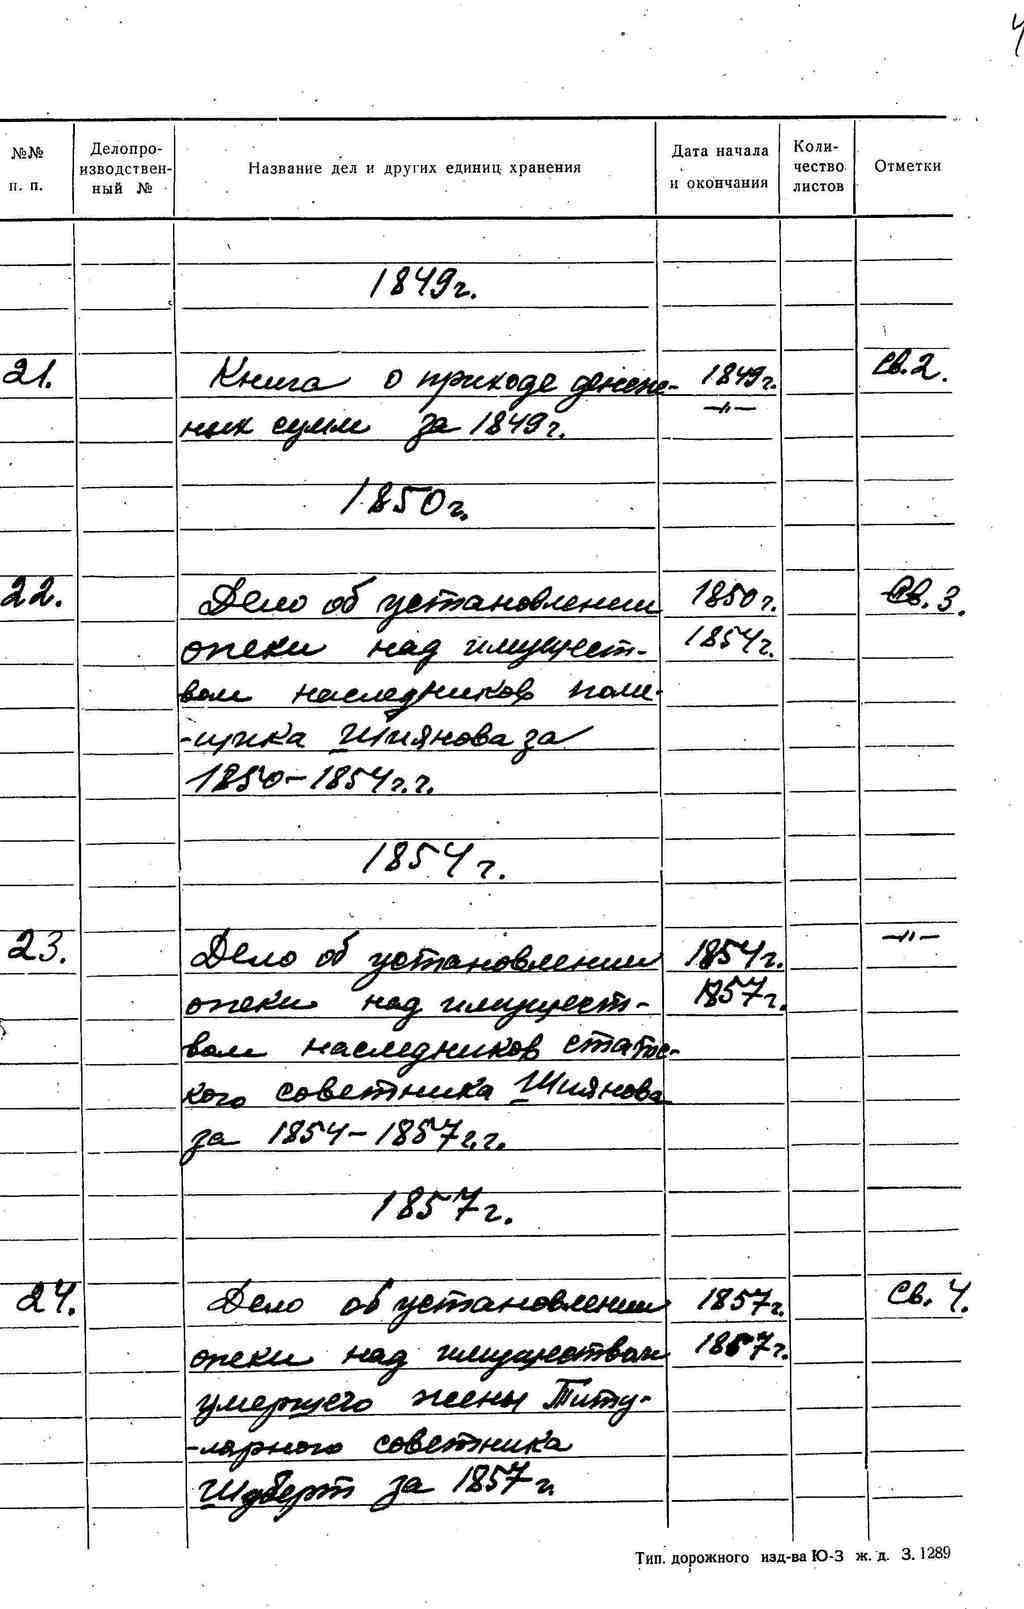 4
№№ п. п.
Делопроизводственный №
Название дел и других единиц хранения
Дата начала и окончания
Количество листов
Отметки
1849г.
21. Книга о приходе денеж- 1849г. Св.2.
ных сумм за 1849г. —"—
1850г.
22. Дело об установлении 1850г. Св.3.
опеки над имущест- 1854г.
вом наследников поме-
-щика Шиянова за
1850-1854г.г.
1854г.
23. Дело об установлении 1854г. —"—
опеки над имущест- 1857г.
вом наследников статс-
кого советника Шиянова
за 1854-1857г.г.
1857г.
24. Дело об установлении 1857г. Св. 4.
опеки над имуществом 1857г.
умершего жены Титу-
-лярного советника
Шуберт за 1857г.
Тип. дорожного изд-ва Ю-З ж. д. З. 1289